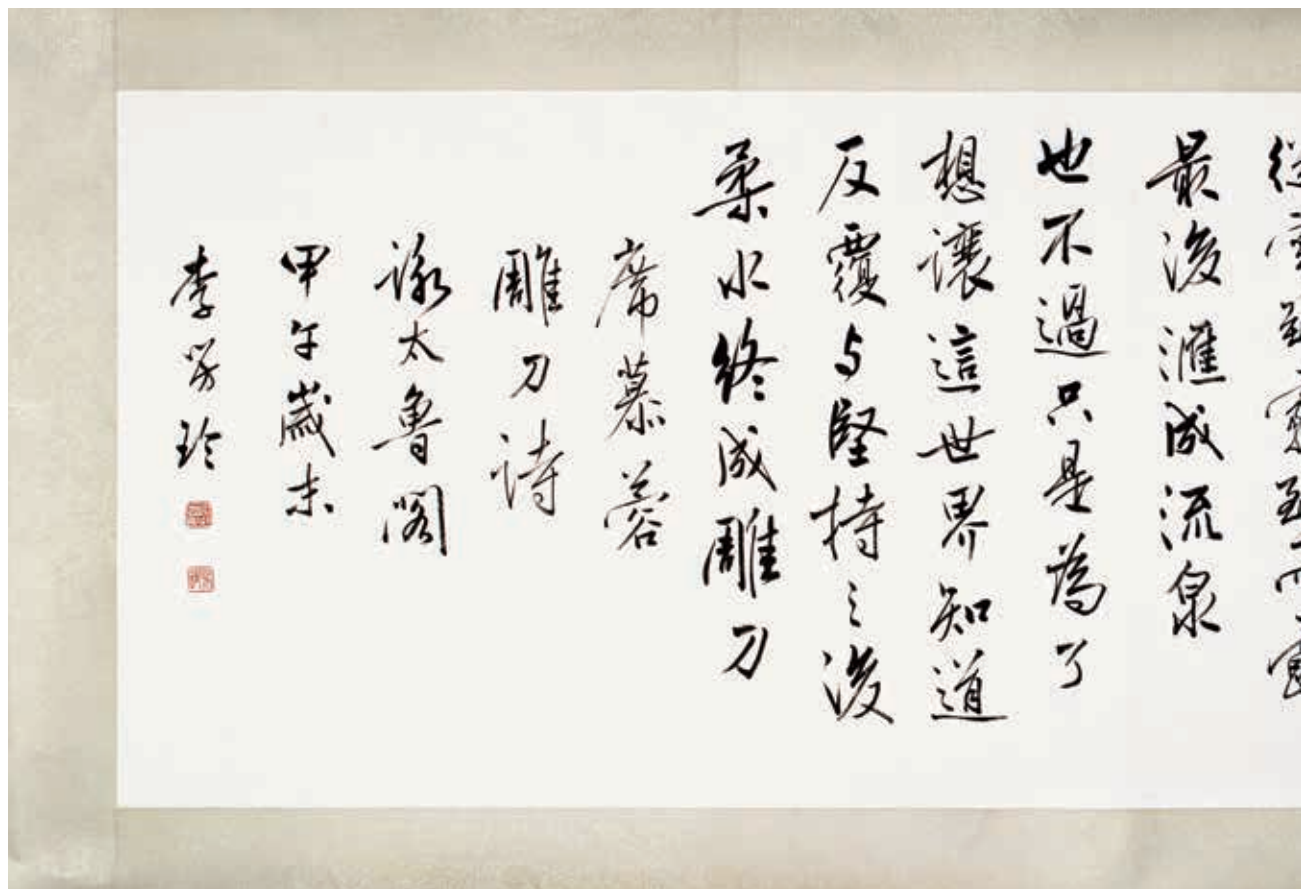 從雲到霧到雨露
最後滙成流泉
也不過只是為了
想讓這世界知道
反覆与堅持之後
柔水終成雕刀
席慕蓉
雕刀詩
詠太魯閣
甲午歲末
李 玲